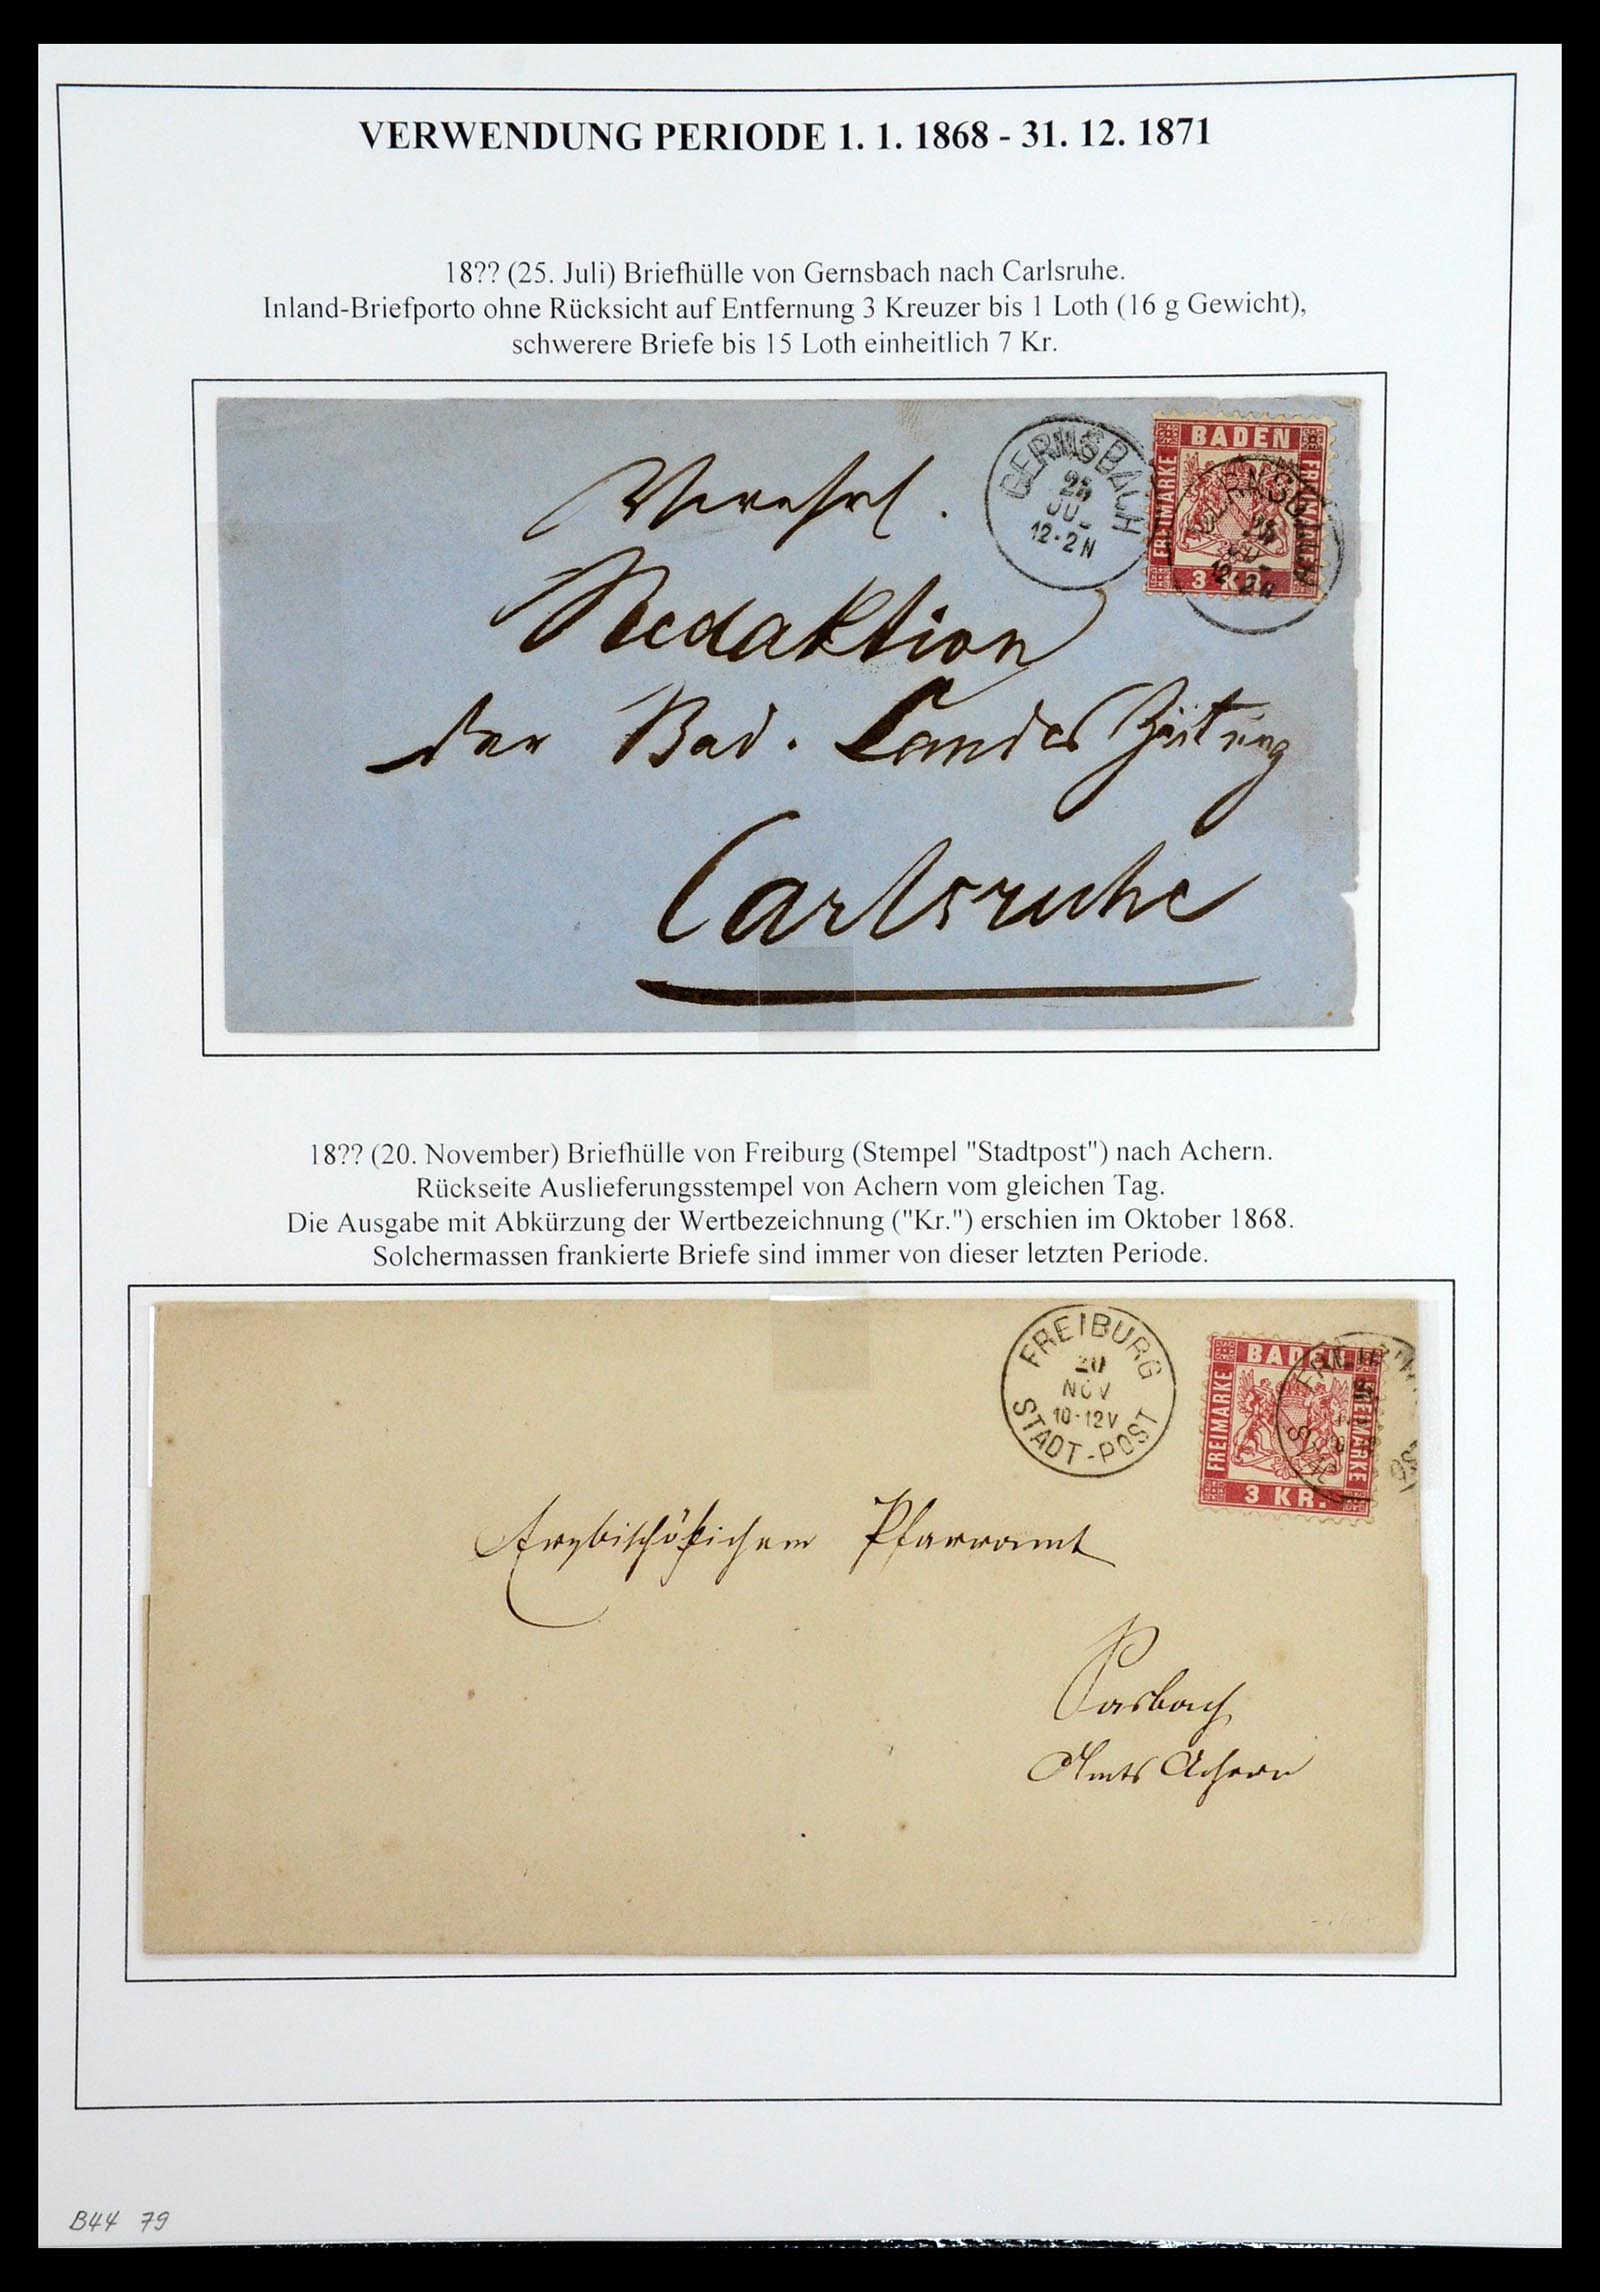 VERWENDUNG PERIODE 1. 1. 1868 - 31. 12. 1871
18?? (25. Juli) Briefhülle von Gernsbach nach Carlsruhe.
Inland-Briefporto ohne Rücksicht auf Entfernung 3 Kreuzer bis 1 Loth (16 g Gewicht),
schwerere Briefe bis 15 Loth einheitlich 7 Kr.
GERNSBACH
25
JUL
12-2N
BADEN
FREIMARKE
FREIMARKE
3 KR.
Redaktion
der Bad. Landes Zeitung
Carlsruhe
18?? (20. November) Briefhülle von Freiburg (Stempel "Stadtpost") nach Achern.
Rückseite Auslieferungsstempel von Achern vom gleichen Tag.
Die Ausgabe mit Abkürzung der Wertbezeichnung ("Kr.") erschien im Oktober 1868.
Solchermassen frankierte Briefe sind immer von dieser letzten Periode.
FREIBURG
20
NOV
10-12V
STADT-POST
BADEN
FREIMARKE
FREIMARKE
3 KR.
Erzbischöflichem Pfarramt
Sasbach
Amts Achern
B44 79